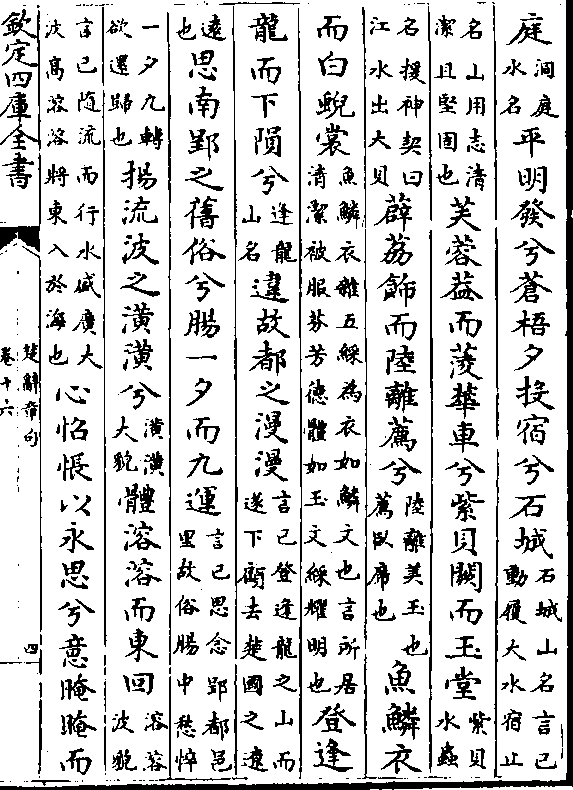 庭洞庭水名平明發兮蒼梧夕投宿兮石城石城山名言己動履大水宿止
名山用志清潔且堅固也芙蓉葢而蔆華車兮紫貝闕而玉堂紫貝水蟲
名援神契曰江水出大貝薜荔飾而陸離薦兮陸離美玉也薦臥席也魚鱗衣
而白蜺裳魚鱗衣雜五綵為衣如鱗文也言所居清潔被服芬芳德體如玉文綵耀明也登逢
龍而下隕兮逢龍山名違故都之漫漫言己登逢龍之山而遂下顧去楚國之遼
遠也思南郢之舊俗兮腸一夕而九運言己思念郢都邑里故俗腸中愁悴
一夕九轉欲還歸也揚流波之潢潢兮潢潢大貌體溶溶而東回溶溶波貌
言己隨流而行水盛廣大波高溶溶將東入於海也心怊悵以永思兮意晻晻而
欽定四庫全書
楚辭章句
卷十六
四